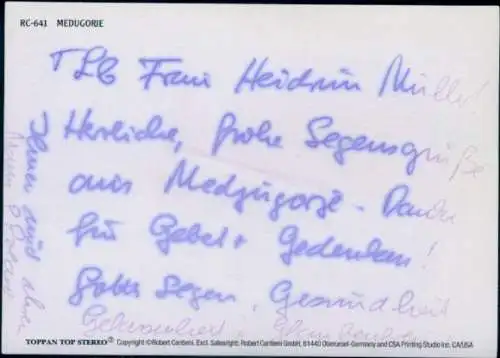 RC-641 MEDUGORIE
Lb Frau Heidrun Müller!
Herzliche, frohe Segensgrüße
aus Medzugorje. Danke
für Gebet + Gedenken!
Gottes Segen, Gesundheit
Gelassenheit,
Ihnen und Ihrer
TOPPAN TOP STEREO® Copyright ©Robert Cantieni. Excl. Salesright: Robert Cantieni GmbH, 61440 Oberursel-Germany and CSA Printing Studio Inc. CA/USA